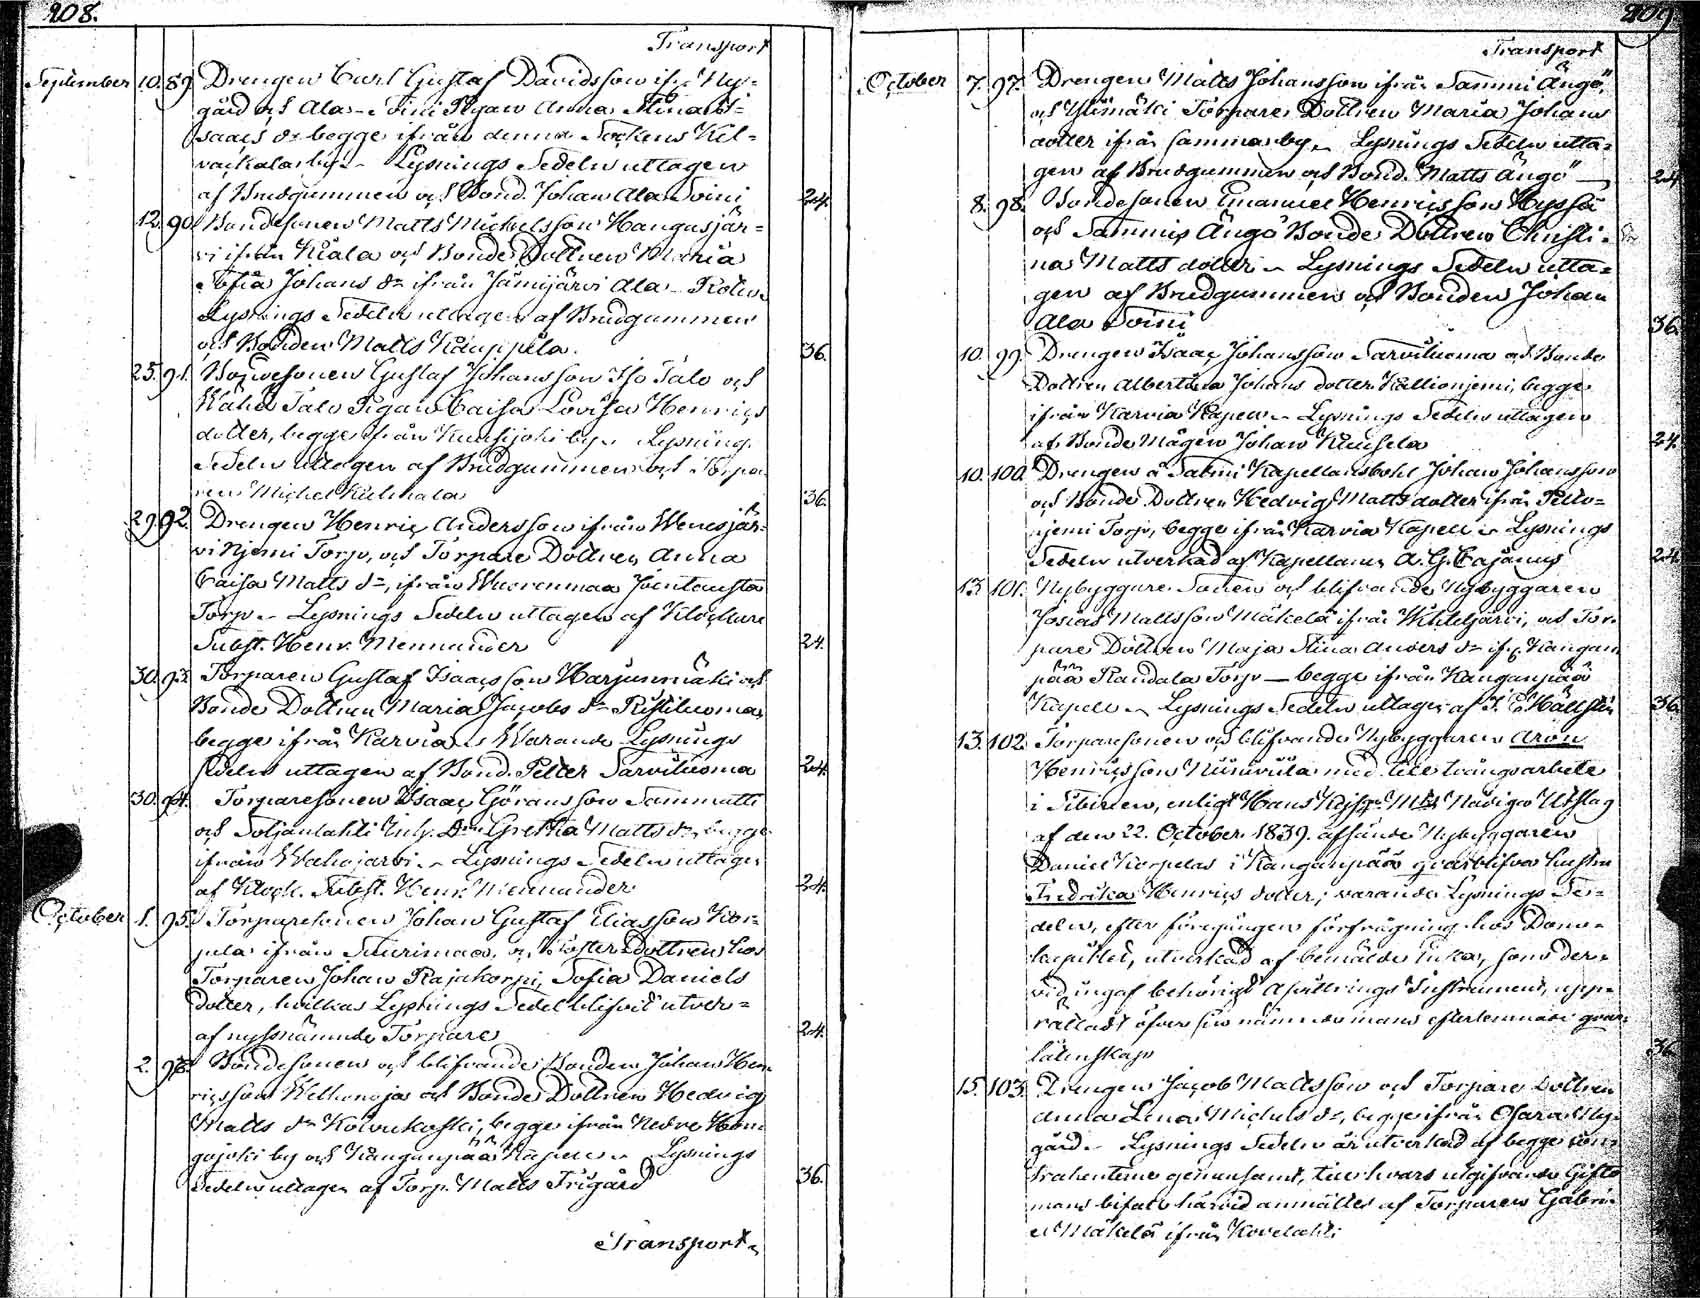 208.
Transport
September 10. 89. Drengen Carl Gustaf Davidsson ifr. Ny-
gård och Ala-Soini Pigan Anna Stina
saacs dr begge ifrån denna Sockens Kil-
vackala by. Lysnings Sedeln uttagen
af Brudgummen och Bond. Johan Ala Soini 24.
12. 90. Bondesonen Matts Michelsson Hangasjär-
vi ifrån Kiala och Bonde Dottren Maria
Sofia Johans dr ifrån Jämijärvi Ala-
Lysnings Sedeln uttagen af Brudgummen
och Bonden Matts Kauppila. 36.
25. 91. Gustaf Johansson Iso Talo och
Wähä Talo Pigan Caisa Lovisa Henrics
dotter, begge ifrån by. Lysnings
Sedeln uttagen af Brudgummen och Torpa-
ren Michel 36.
29. 92. Drengen Henric Andersson ifrån Wenesjär-
vi Njemi Torp, och Torpare Dottren Anna
Caisa Matts dr, ifrån
Torp. Lysnings Sedeln uttagen af Klockare
Subst. Henr. Mennander 24.
30. 93. Torparen Gustaf Isaacsson Harjunmäki och
Bonde Dottren Maria Jacobs dr Ristiluoma,
begge ifrån Karvia. Warande Lysnings
sedeln uttagen af Bond. Petter Sarviluoma 24.
30. 94. Torparesonen Isaac Göransson Sammatti
och Soljanlahti Inh. Dr Gretha Matts dr, begge
ifrån Wahojärvi. Lysnings Sedeln uttagen
af Klock. Subst. Henr. Mennander 24.
October 1. 95. Torparesonen Johan Gustaf Eliasson Kor-
pela ifrån Suurimaa, och Foster Dottren hos
Torparen Johan Rajakorpi, Sofia Daniels
dotter, hvilkas Lysnings Sedel blifvit utver-
af nyssnämnde Torpare 24.
2. 96. Bondesonen och blifvande Bonden Johan Hen-
ricsson Welhonoja och Bonde Dottren Hedvig
Matts dr Koivukoski, begge ifrån Nedre Hon-
gojoki by och Kangunpää Kapell. Lysnings
Sedeln uttagen af Torp. Matts Frigård 36.
Transport
209.
Transport
October 7. 97. Drengen Matts Johansson ifrån Sammi Ängö,
och Ylimäki Torpare Dottren Maria Johans
dotter ifrån samma by. Lysnings Sedeln utta-
gen af Brudgummen och Bond. Matts Ängö 24
8. 98. Bondesonen Emanuel Henricsson Hyssä
och Sammis Ängö Bonde Dottren Christi-
na Matts dotter. Lysnings Sedeln utta-
gen af Brudgummen och Bonden Johan
Ala Soini 36.
10. 99. Drengen Isaac Johansson Sarviluoma och Bonde
Dottren Albertina Johans dotter Kallionjemi, begge
ifrån Karvia Kapell. Lysnings Sedeln uttagen
af Bonde Mågen Johan Kuusela 24.
10. 100. Drengen å Salmi Kapellansbohl Johan Johansson
och Bonde Dottren Hedvig Matts dotter ifrån Pello-
njemi Torp, begge ifrån Karvia Kapell. Lysnings
Sedeln utverkad af Kapellanen A. G. Cajanus 24.
13. 101. Nybyggare Sonen och blifvande Nybyggaren
Josias Mattsson Mäkelä ifrån Wihteljärvi, och Tor-
pare Dottren Maja Stina Anders dr ifr. Kangan
pää Randala Torp — begge ifrån Kanganpää
Kapell. Lysnings Sedeln uttagen af 36.
13. 102. Torparesonen och blifvande Nybyggaren Aron
Henricsson Niiniviita med till tvångsarbete
i Sibirien, enligt Hans Kejs. Mts Nådiga Utslag
af den 22. October 1839. afsände Nybyggaren
Daniel Korpelas i Kanganpää qvarblifna hustru
Fredrika Henrics dotter; varande Lysnings Se-
deln, efter föregången förfrågning hos Dom-
kapitlet, utverkad af bemälde Enka, som der-
vid ingaf behörigt Afvittrings Instrument, upp-
rättadt öfver sin nämnde mans efterlemnade qvar-
låtenskap 36.
15. 103. Drengen Jacob Mattsson och Torpare Dottren
Anna Lena Michels dr, begge ifrån Osara Ny-
gård. Lysnings Sedeln är utverkad af begge con-
trahenterne gemensamt, till hvars utgifvande Gifto
mans bifall härvid anmältes af Torparen Gabri-
el Mäkelä ifrån Kovelahti